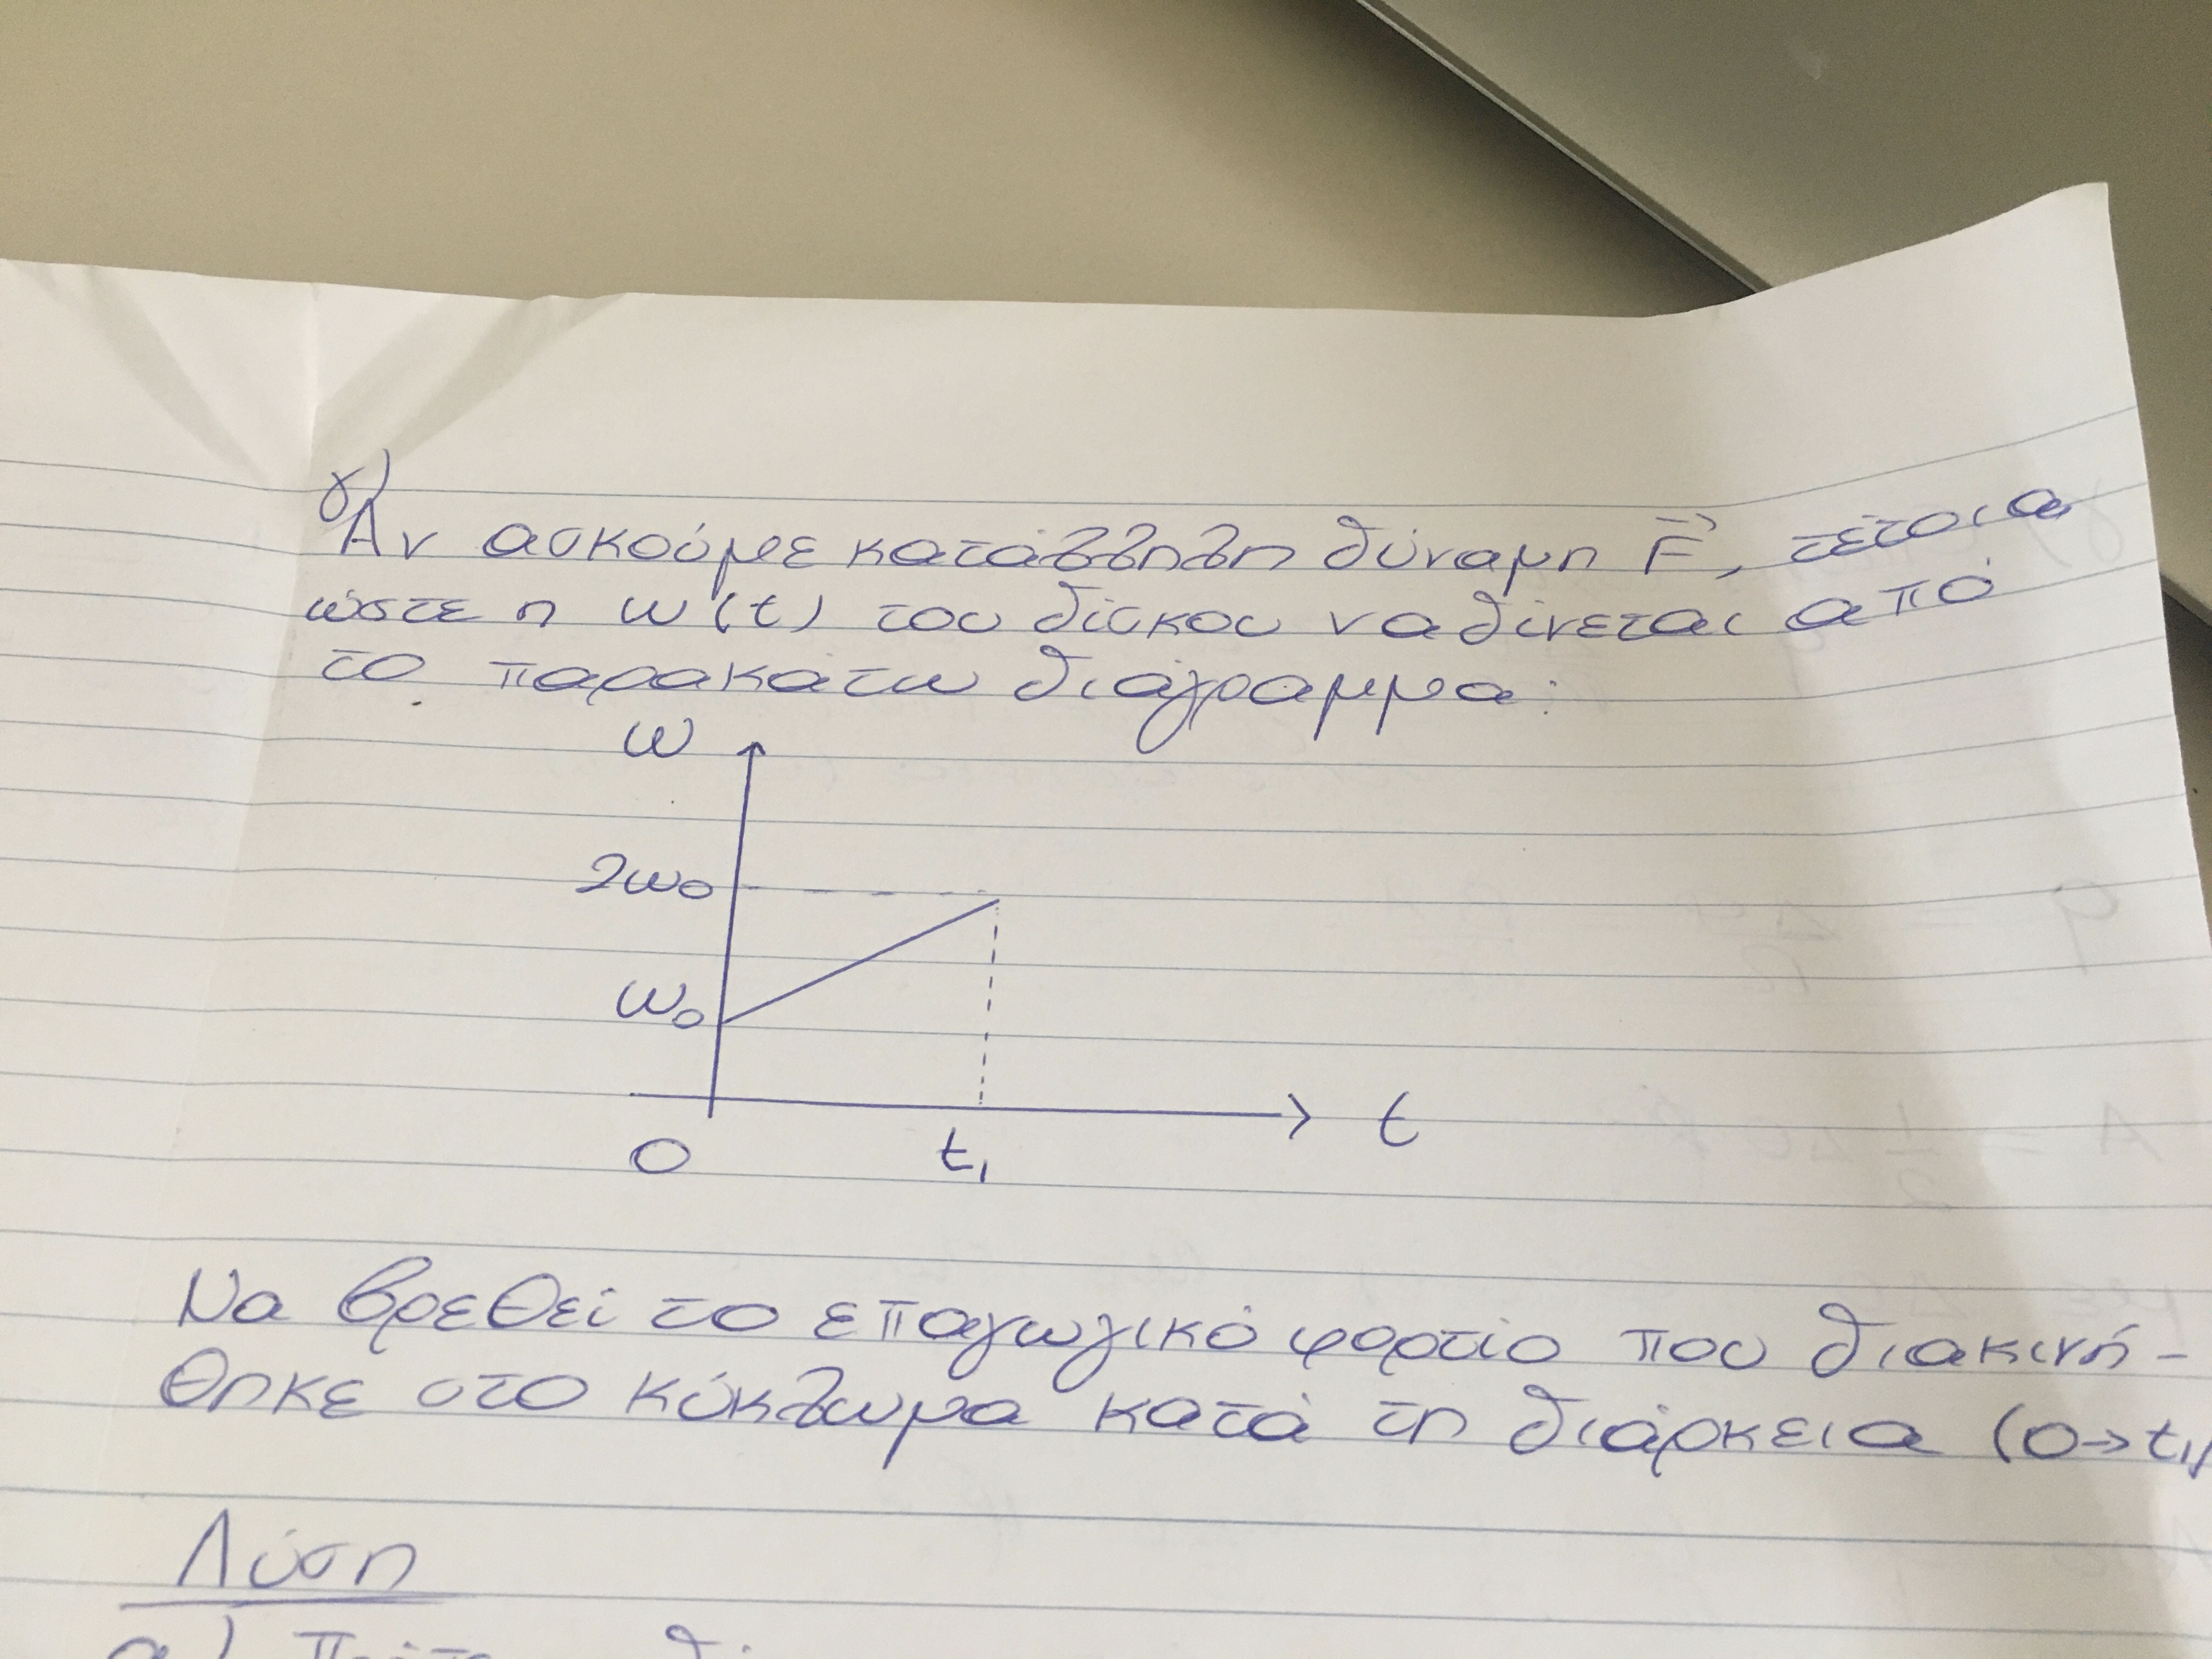 γ)
Αν ασκούμε κατάλληλη δύναμη F, τέτοια
ώστε η ω(t) του δίσκου να δίνεται από
το παρακάτω διάγραμμα:
ω
2ω0
ω0
t
0 t1
Να βρεθεί το επαγωγικό φορτίο που διακινή-
θηκε στο κύκλωμα κατά τη διάρκεια (0→t1)
Λύση
α)